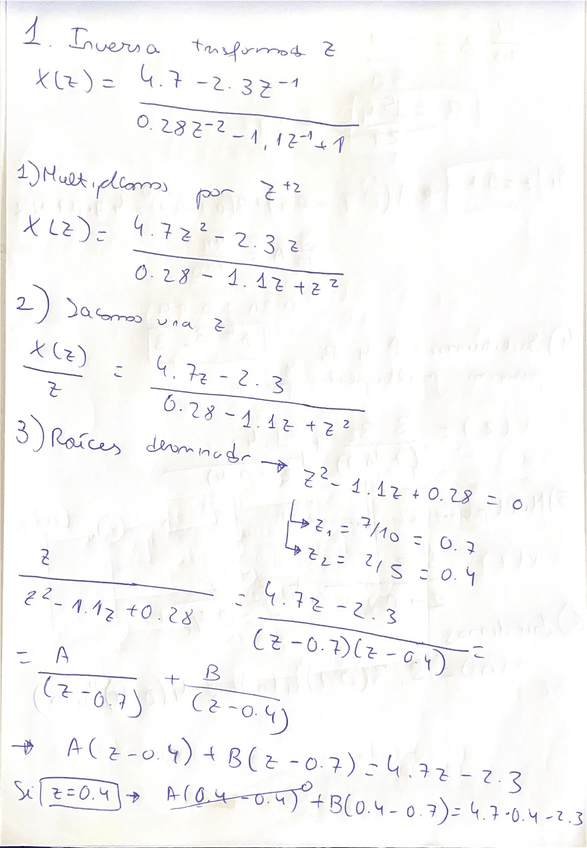 1. Inversa trasformas z
X(z) = 4.7 - 2.3z⁻¹
0.28z⁻² - 1,1z⁻¹ + 1
1) Multiplicamos por z⁺²
X(z) = 4.7z² - 2.3z
0.28 - 1.1z + z²
2) Sacamos una z
X(z) / z = 4.7z - 2.3
0.28 - 1.1z + z²
3) Raíces denominador → z² - 1.1z + 0.28 = 0
↳ z₁ = 7/10 = 0.7
↳ z₂ = 2/5 = 0.4
z / z² - 1.1z + 0.28 = 4.7z - 2.3 / (z - 0.7)(z - 0.4) =
= A / (z - 0.7) + B / (z - 0.4)
→ A(z - 0.4) + B(z - 0.7) = 4.7z - 2.3
Si z = 0.4 → A(0.4 - 0.4)⁰ + B(0.4 - 0.7) = 4.7·0.4 - 2.3